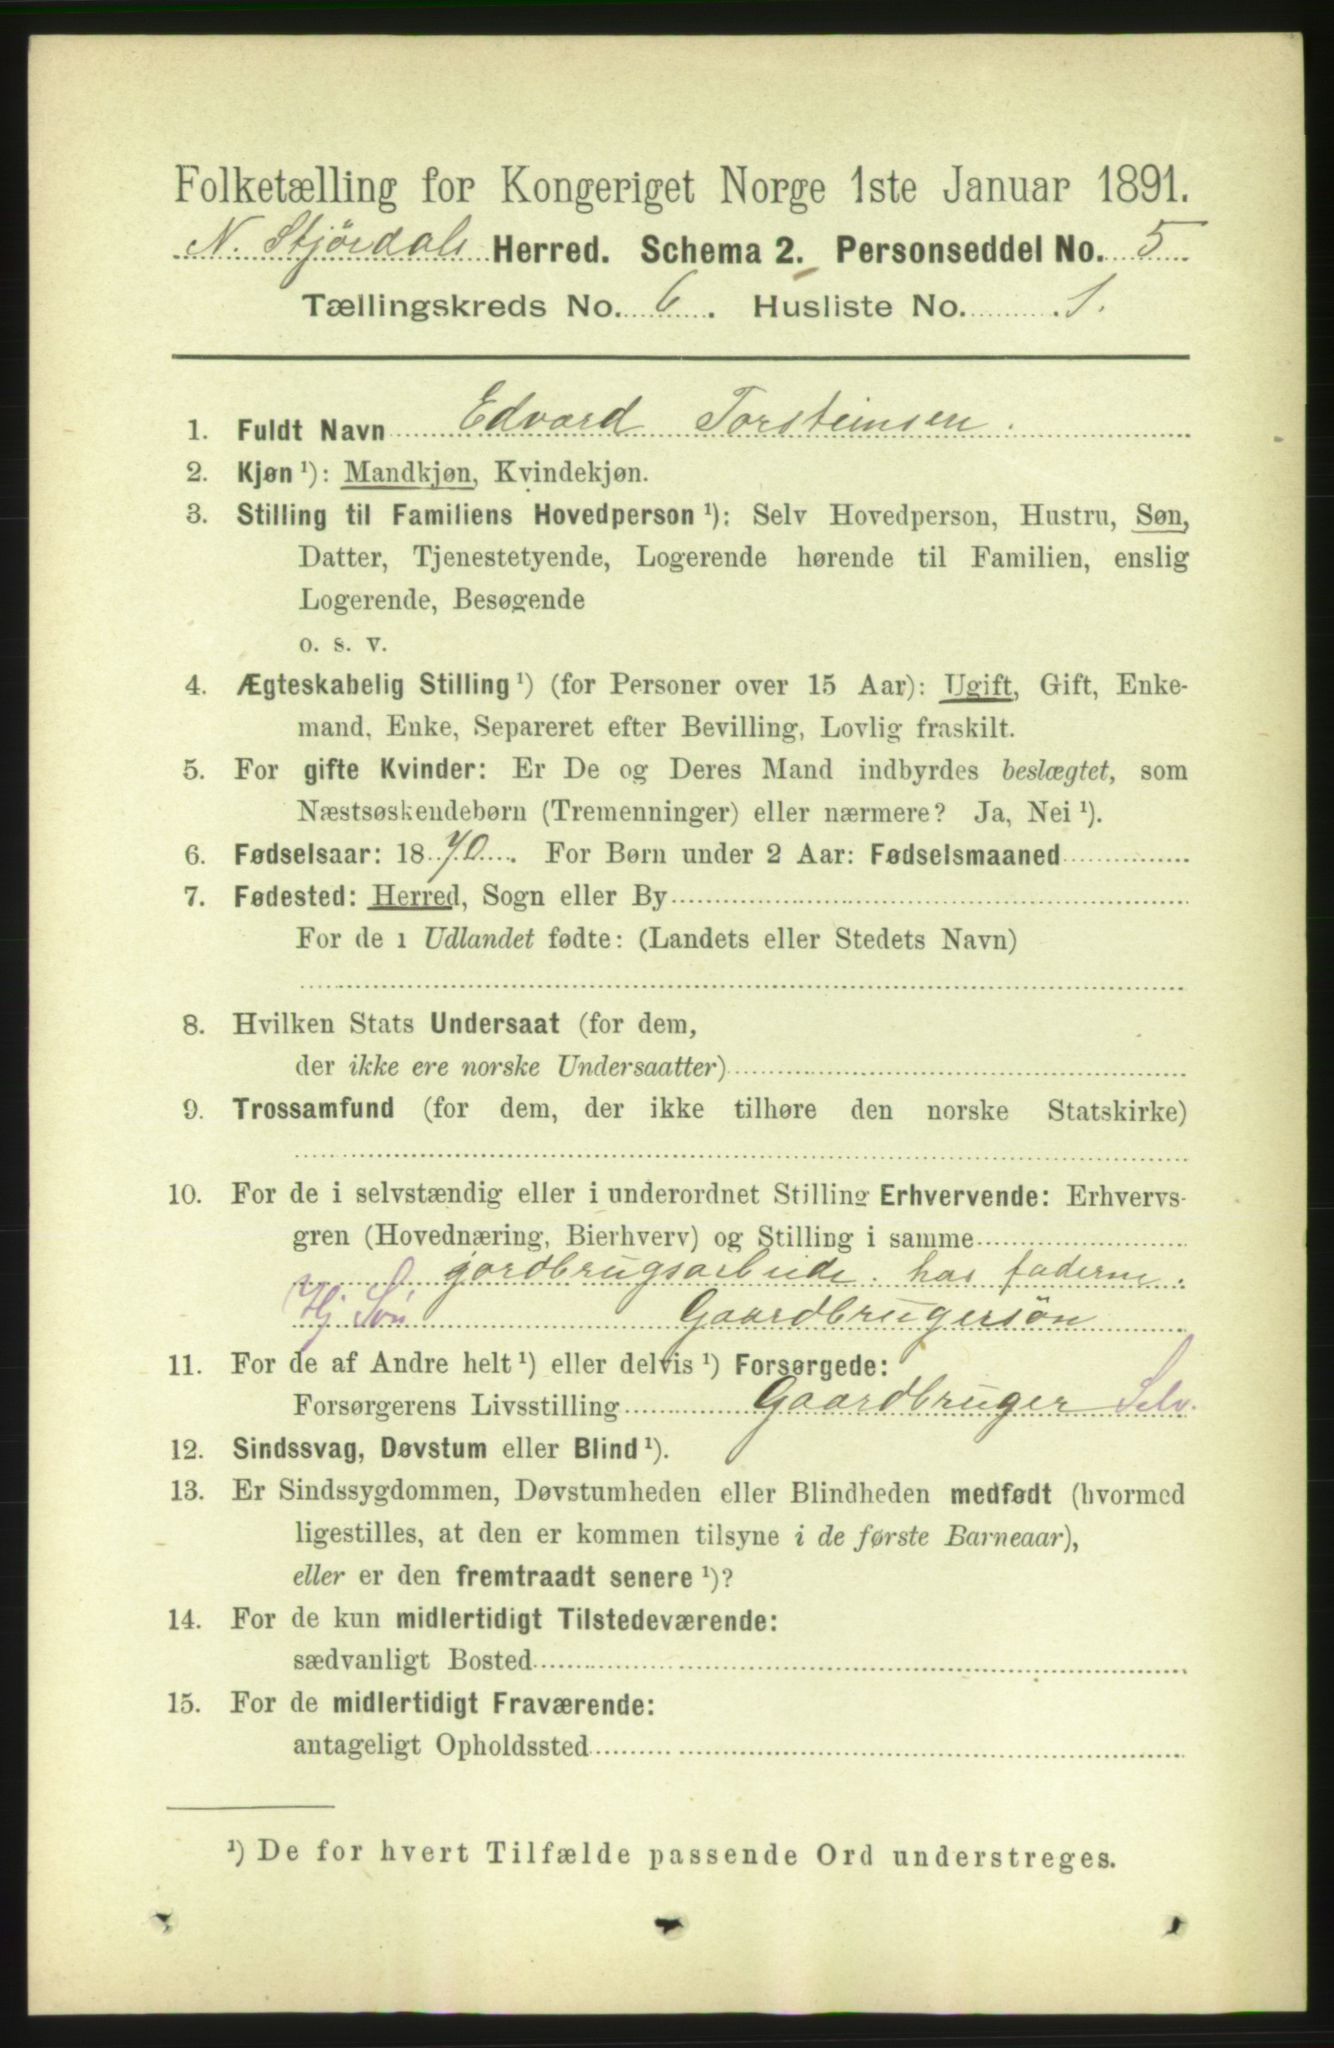 Folketælling for Kongeriget Norge 1ste Januar 1891.
N. Stjørdals Herred. Schema 2. Personseddel No. 5
Tællingskreds No. 6. Husliste No. 1.
1. Fuldt Navn Edvard Torsteinsen.
2. Kjøn ¹): Mandkjøn, Kvindekjøn.
3. Stilling til Familiens Hovedperson ¹): Selv Hovedperson, Hustru, Søn,
Datter, Tjenestetyende, Logerende hørende til Familien, enslig
Logerende, Besøgende
o. s. v.
4. Ægteskabelig Stilling ¹) (for Personer over 15 Aar): Ugift, Gift, Enke-
mand, Enke, Separeret efter Bevilling, Lovlig fraskilt.
5. For gifte Kvinder: Er De og Deres Mand indbyrdes beslægtet, som
Næstsøskendebørn (Tremenninger) eller nærmere? Ja, Nei ¹).
6. Fødselsaar: 1870. For Børn under 2 Aar: Fødselsmaaned
7. Fødested: Herred, Sogn eller By
For de i Udlandet fødte: (Landets eller Stedets Navn)
8. Hvilken Stats Undersaat (for dem,
der ikke ere norske Undersaatter)
9. Trossamfund (for dem, der ikke tilhøre den norske Statskirke)
10. For de i selvstændig eller i underordnet Stilling Erhvervende: Erhvervs-
gren (Hovednæring, Bierhverv) og Stilling i samme
gordbrugsarbeide hos faderne.
Hj Søn Gaardbrugersön
11. For de af Andre helt ¹) eller delvis ¹) Forsørgede:
Forsørgerens Livsstilling Gaardbruger Selv.
12. Sindssvag, Døvstum eller Blind ¹).
13. Er Sindssygdommen, Døvstumheden eller Blindheden medfødt (hvormed
ligestilles, at den er kommen tilsyne i de første Barneaar),
eller er den fremtraadt senere ¹)?
14. For de kun midlertidigt Tilstedeværende:
sædvanligt Bosted
15. For de midlertidigt Fraværende:
antageligt Opholdssted
¹) De for hvert Tilfælde passende Ord understreges.